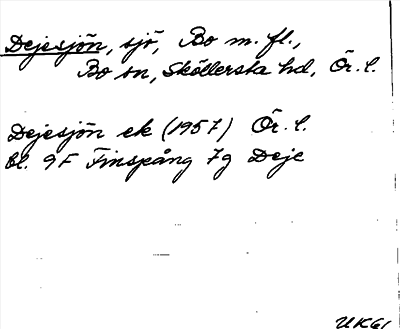 Dejesjön, sjö, Bo m. fl.,
Bo sn, Sköllersta hd, Ör. l.
Dejesjön ek (1957) Ör. l.
bl. 9F Finspång 7g Deje
UK61